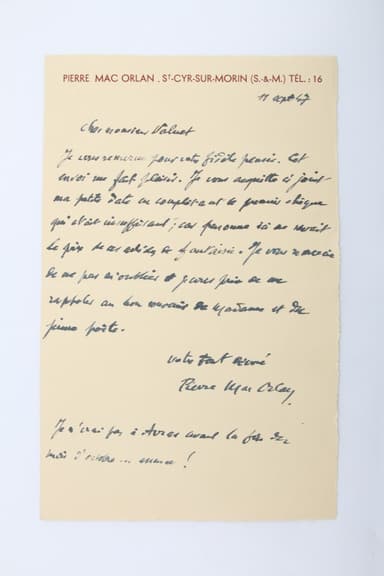 PIERRE MAC ORLAN . ST-CYR-SUR-MORIN (S.-&-M.) TÉL. : 16
11 sept 47
Cher monsieur
Je vous remercie pour votre fidèle pensée. Cet
envoi me fait plaisir. Je vous acquitte ci joint
ma petite dette en complétant le premier chèque
qui était insuffisant ; car personne ici ne savait
le prix de ces de fantaisie. Je vous remercie
de ne pas m'oublier et vous prie de me
rappeler au bon souvenir de Madame et du
jeune poète.
votre tout dévoué
Pierre Mac Orlan
Je n'irai pas à Arras avant la fin du
mois d'octobre... !